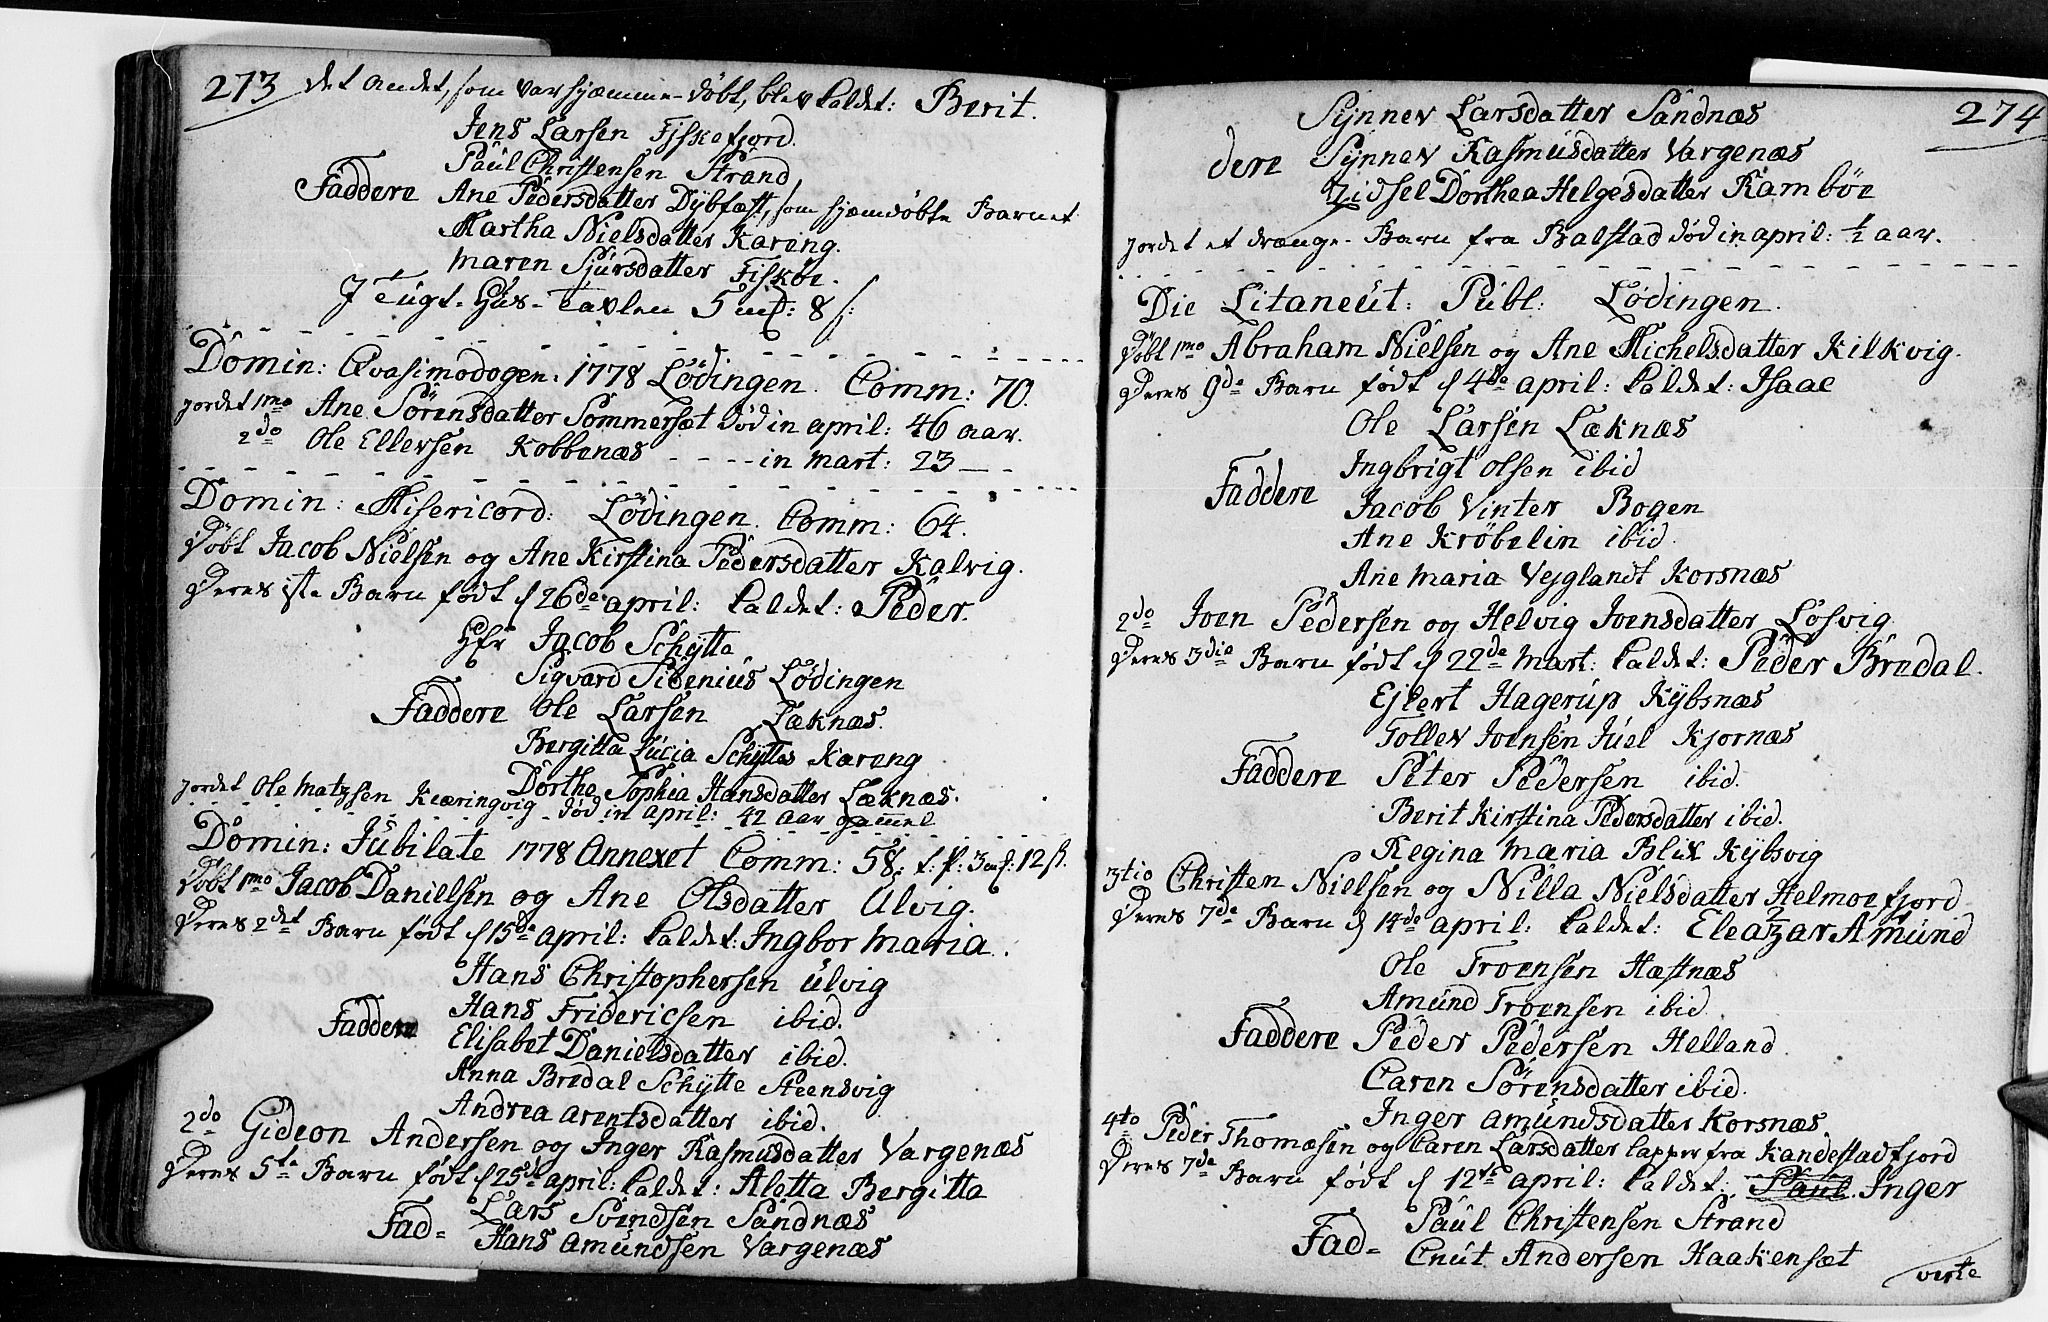 273 det andet, som var hjemme-døbt, blev kaldet: Berit.
Jens Larsen Fiskefjord.
Paul Christensen Strand
Faddere Ane Pedersdatter Dybfæst, som hjemdøbte Barnet
Martha Nielsdatter Kareng.
Maren Sjursdatter Fiskøe.
I Tugt-Hus-Tavlen 5 mk: 8 ß:
Domin: Qvasimodogen: 1778 Lødingen. Comm: 70.
Jordet 1mo Ane Sørensdatter Sommersæt død in april: 46 aar.
2do Ole Ellevsen Kobbenæs - - - - in Mart: 23 - -
Domin: Misericord: Lødingen. Comm: 64.
Døbt Jacob Nielsen og Ane Kirstina Pedersdatter Kalvig.
Deres 1ste Barn født d 26de april: kaldet: Peder.
Hr Jacob Schytte
Sigvard Sidenius Lødingen
Faddere Ole Larsen Læknæs.
Bergitta Lucia Schyttes Kareng
Dorthe Sophia Hansdatter Læknæs.
Jordet Ole Matzsen Kiæringvig død in April: 42 aar gammel
Domin: Jubilate 1778 Annexet Comm: 58. t: f: 3 mk: 12 ß.
Døbt 1mo Jacob Danielsen og Ane Olsdatter Ulvig.
Deres 2det Barn født d 15de april: kaldet: Ingbor Maria.
Hans Christophersen Ulvig
Hans Fridericsen ibid.
Faddere Elisabet Danielsdatter ibid.
Anna Bredal Schytte Steensvig
Andrea Arentsdatter ibid.
2do Gideon Andersen og Inger Rasmusdatter Vargenæs
Deres 5te Barn født d 25de april: kaldet: Aletta Bergitta
Lars Svendsen Sandnæs
Fad= Hans Amundsen Vargenæs
274
Synnev Larsdatter Sandnæs
dere Synnev Rasmusdatter Vargenæs
Zidsel Dorthea Helgesdatter Rambøe
Jordet et drenge-Barn fra Balstad død in april: ½ aar.
Die Litaneut: Publ: Lødingen.
Døbt 1mo Abraham Nielsen og Ane Michelsdatter Kilkvig.
Deres 9de Barn født d 4de april: kaldet: Isaac
Ole Larsen Læknæs
Ingbrigt Olsen ibid
Faddere Jacob Vinter Bogen
Ane Krøbelin ibid.
Ane Maria Vejglandt Korsnæs
2do Joen Pedersen og Helvig Joensdatter Losvig
Deres 3die Barn født d 22de Mart: kaldet: Peder Bredal.
Ejlert Hagerup Kybsnæs
Tollev Joensen Juel Kjornæs
Faddere Peter Pedersen ibid.
Berit Kirstina Pedersdatter ibid.
Regina Maria Blix Kybsvig
3tio Christen Nielsen og Nilla Nielsdatter Helmoefjord
Deres 7de Barn d 14de april: kaldet: Eleatzar Amund
Ole Troensen Hæstnæs
Amund Troensen ibid.
Faddere Peder Pedersen Helland.
Caren Sørensdatter ibid.
Inger Amundsdatter Korsnæs
4to Peder Thomæsen og Caren Larsdatter lapper fra Kandestadfjord
Deres 7de Barn født d 12te april: kaldet: Paul Inger
Paul Christensen Strand
Fad= Cnut Andersen Haakensæt
verte